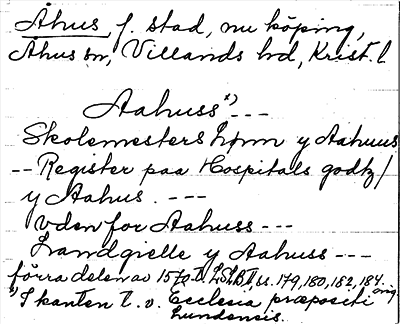 Åhus f. stad, nu köping,
Åhus sn, Villands hd, Krist. l
Aahuss x) ---
Skolemesters hᵱm y Aahuus
-- Register paa Hospitals godtz/
y Aahus. ---
vden for Aahuss ---
Landgielle y Aahuss ---
förra delen av 1570-t. LSLB II, s. 179, 180, 182, 184 orig.
x) I kanten t. v. Ecclesia præpositi
Lundensis.